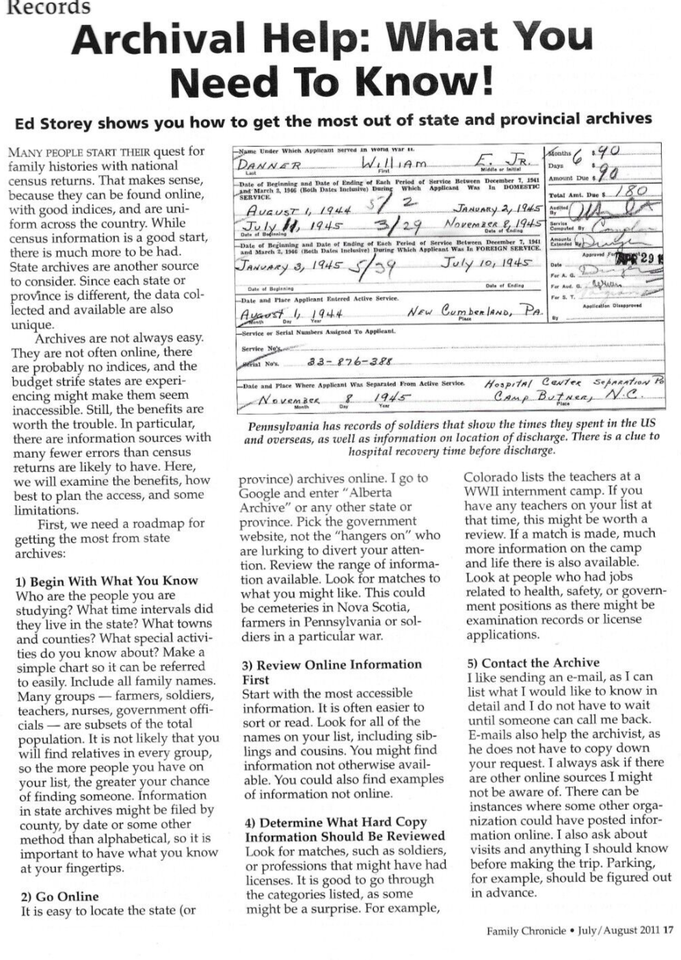 Records
Archival Help: What You
Need To Know!
Ed Storey shows you how to get the most out of state and provincial archives
MANY PEOPLE START THEIR quest for
family histories with national
census returns. That makes sense,
because they can be found online,
with good indices, and are uni-
form across the country. While
census information is a good start,
there is much more to be had.
State archives are another source
to consider. Since each state or
province is different, the data col-
lected and available are also
unique.
Archives are not always easy.
They are not often online, there
are probably no indices, and the
budget strife states are experi-
encing might make them seem
inaccessible. Still, the benefits are
worth the trouble. In particular,
there are information sources with
many fewer errors than census
returns are likely to have. Here,
we will examine the benefits, how
best to plan the access, and some
limitations.
First, we need a roadmap for
getting the most from state
archives:
1) Begin With What You Know
Who are the people you are
studying? What time intervals did
they live in the state? What towns
and counties? What special activi-
ties do you know about? Make a
simple chart so it can be referred
to easily. Include all family names.
Many groups — farmers, soldiers,
teachers, nurses, government offi-
cials — are subsets of the total
population. It is not likely that you
will find relatives in every group,
so the more people you have on
your list, the greater your chance
of finding someone. Information
in state archives might be filed by
county, by date or some other
method than alphabetical, so it is
important to have what you know
at your fingertips.
2) Go Online
It is easy to locate the state (or
Name Under Which Applicant Served in World War II.
DANNER William E. JR.
Last First Middle or Initial
Date of Beginning and Date of Ending of Each Period of Service Between December 7, 1941
and March 2, 1946 (Both Dates Inclusive) During Which Applicant Was in DOMESTIC
SERVICE.
AUGUST 1, 1944 5/2 JANUARY 2, 1945
July 11, 1945 3/29 NOVEMBER 8, 1945
Date of Beginning Date of Ending
Date of Beginning and Date of Ending of Each Period of Service Between December 7, 1941
and March 2, 1946 (Both Dates Inclusive) During Which Applicant Was in FOREIGN SERVICE.
JANUARY 3, 1945 5/39 JULY 10, 1945
Date of Beginning Date of Ending
Date and Place Applicant Entered Active Service.
AUGUST 1, 1944 NEW CUMBERLAND, PA.
Month Day Year Place
Service or Serial Numbers Assigned To Applicant.
Service No's.
Serial No's. 33-876-388
Date and Place Where Applicant Was Separated From Active Service. HOSPITAL CENTER SEPARATION
NOVEMBER 8 1945 CAMP BUTNER, N.C.
Month Day Year Place
Months 6 $ 90
Days $ 90
Amount Due $ 90
Total Amt. Due $ 180
Audited
By
Service
Computed By
Amounts
Extended By
Approved For
Date APR 29
For A. G.
For Aud. G.
For S. T.
Application Disapproved
By
Pennsylvania has records of soldiers that show the times they spent in the US
and overseas, as well as information on location of discharge. There is a clue to
hospital recovery time before discharge.
province) archives online. I go to
Google and enter "Alberta
Archive" or any other state or
province. Pick the government
website, not the "hangers on" who
are lurking to divert your atten-
tion. Review the range of informa-
tion available. Look for matches to
what you might like. This could
be cemeteries in Nova Scotia,
farmers in Pennsylvania or sol-
diers in a particular war.
3) Review Online Information
First
Start with the most accessible
information. It is often easier to
sort or read. Look for all of the
names on your list, including sib-
lings and cousins. You might find
information not otherwise avail-
able. You could also find examples
of information not online.
4) Determine What Hard Copy
Information Should Be Reviewed
Look for matches, such as soldiers,
or professions that might have had
licenses. It is good to go through
the categories listed, as some
might be a surprise. For example,
Colorado lists the teachers at a
WWII internment camp. If you
have any teachers on your list at
that time, this might be worth a
review. If a match is made, much
more information on the camp
and life there is also available.
Look at people who had jobs
related to health, safety, or govern-
ment positions as there might be
examination records or license
applications.
5) Contact the Archive
I like sending an e-mail, as I can
list what I would like to know in
detail and I do not have to wait
until someone can call me back.
E-mails also help the archivist, as
he does not have to copy down
your request. I always ask if there
are other online sources I might
not be aware of. There can be
instances where some other orga-
nization could have posted infor-
mation online. I also ask about
visits and anything I should know
before making the trip. Parking,
for example, should be figured out
in advance.
Family Chronicle • July/August 2011 17